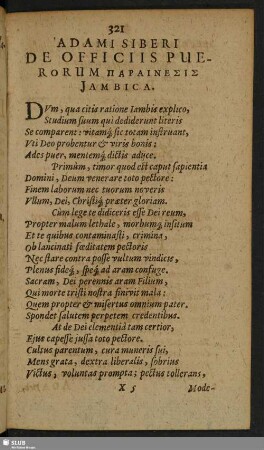 321
ADAMI SIBERI
DE OFFICIIS PUE-
RORUM ΠΑΡΑΙΝΕΣΙΣ
JAMBICA.
DVm, qua citis ratione Iambis explico,
Studium suum qui dediderunt literis
Se comparent: vitamq́; sic totam instruant,
Vti Deo probentur & viris bonis:
Ades puer, mentemq́; dictis adijce.
Primùm, timor quod est caput sapientia
Domini, Deum venerare toto pectore:
Finem laborum nec tuorum noveris
Vllum, Dei, Christiq́; præter gloriam.
Cùm lege te didiceris esse Dei reum,
Propter malum lethale, morbumq́; insitum
Et te quibus contaminasti, crimina,
Ob lancinati fœditatem pectoris
Nec stare contra posse vultum vindicis,
Plenus fideiq́;, speiq́; ad aram confuge.
Sacram, Dei perennis aram Filium,
Qui morte tristi nostra solvit mala:
Quem propter & misertus omnium pater.
Spondet salutem perpetem credentibus.
At de Dei clementiâ tam certior,
Ejus capesse jussa toto pectore.
Cultus parentum, cura muneris sui,
Mens grata, dextra liberalis, sobrius
Victus, voluntas prompta; pectus tollerans,
X 5
Mode-
SLUB